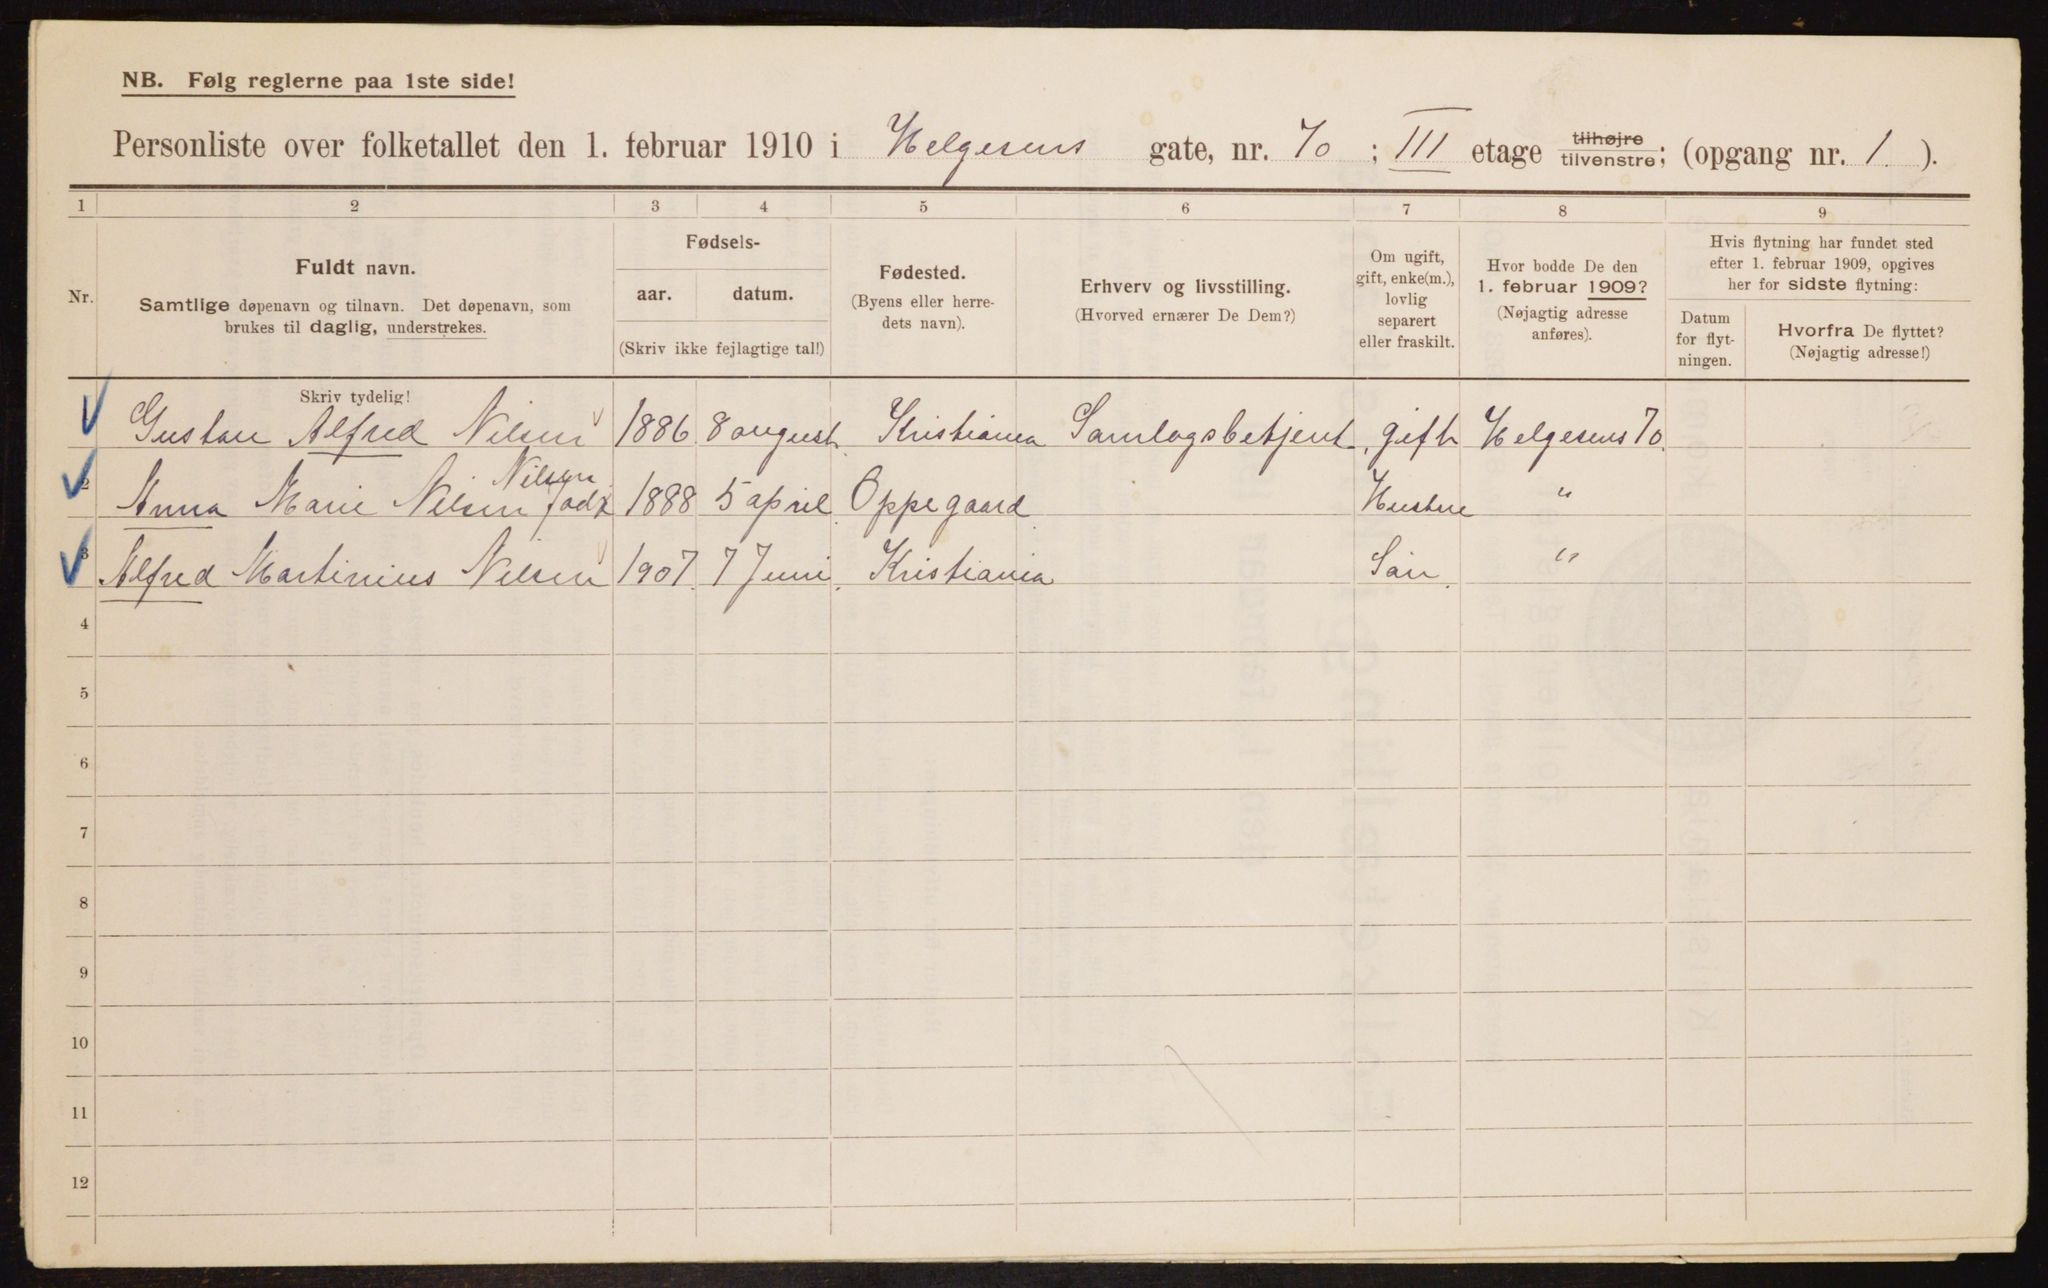 NB. Følg reglerne paa 1ste side!
Personliste over folketallet den 1. februar 1910 i Helgesens gate, nr. 70 ; III etage tilhøjre tilvenstre; (opgang nr. 1 ).
1 2 3 4 5 6 7 8 9
Nr.
Fuldt navn.
Samtlige døpenavn og tilnavn. Det døpenavn, som
brukes til daglig, understrekes.
Fødsels-
aar. datum.
(Skriv ikke fejlagtige tal!)
Fødested.
(Byens eller herre-
dets navn).
Erhverv og livsstilling.
(Hvorved ernærer De Dem?)
Om ugift,
gift, enke(m.),
lovlig
separert
eller fraskilt.
Hvor bodde De den
1. februar 1909?
(Nøjagtig adresse
anføres).
Hvis flytning har fundet sted
efter 1. februar 1909, opgives
her for sidste flytning:
Datum
for flyt-
ningen.
Hvorfra De flyttet?
(Nøjagtig adresse!)
Skriv tydelig!
Gustav Alfred Nilsen 1886 8 august Kristiania Samlagsbetjent gift Helgesens 70
Nilsen
2 Anna Marie Nilsen født 1888 5 april Oppegaard Hustru "
3 Alfred Martinius Nilsen 1907 7 Juni Kristiania Søn "
4
5
6
7
8
9
10
11
12